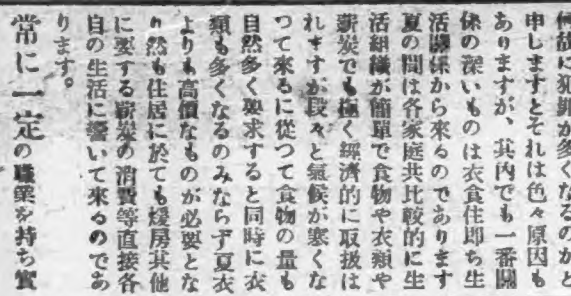 何故に犯罪が多くなるのかと
申しますとそれは色々原因も
ありますが、其内でも一番關
係の深いものは衣食住即ち生
活關係から來るのであります
夏の間は各家庭共比較的に生
活組織が簡單で食物や衣類や
薪炭でも極く經濟的に取扱は
れますが段々と氣候が寒くな
つて來るに從つて食物の量も
自然多く要求すると同時に衣
類も多くなるのみならず夏衣
よりも高價なものが必要とな
り然も住居に於ても煖房其他
に要する薪炭の消費等直接各
自の生活に響いて來るのであ
ります。
常に一定の職業を持ち實